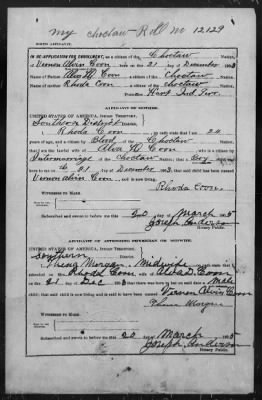 my Choctaw-Roll no 12129
BIRTH AFFIDAVIT.
IN RE APPLICATION FOR ENROLLMENT, as a citizen of the Choctaw Nation,
of Vernon Alvin Coon, born on the 21 day of December
Name of Father: Alva W. Coon a citizen of the Choctaw Nation.
Name of Mother: Rhoda Coon a citizen of the Choctaw Nation.
Ind Ter
AFFIDAVIT OF MOTHER.
UNITED STATES OF AMERICA, INDIAN TERRITORY,
Southern District.
I, Rhoda Coon, on oath state that I am 24
years of age and a citizen by Blood, of the Choctaw Nation;
that I am the lawful wife of Alva W Coon, who is a citizen, by
Intermarriage of the Choctaw Nation; that a Boy child was
born to me on 21 day of December, that said child has been named
Vernon Alvin Coon, and is now living.
Rhoda Coon
WITNESSES TO MARK:
Subscribed and sworn to before me this 2nd day of March, 1905
Joseph Anderson
Notary Public.
AFFIDAVIT OF ATTENDING PHYSICIAN OR MIDWIFE.
UNITED STATES OF AMERICA, INDIAN TERRITORY,
Southern District.
I, Morgan, a Midwife, on oath state that I
attended on Mrs. Rhoda Coon, wife of Coon
on the 21 day of Dec; that there was born to her on said date a male
child; that said child is now living and is said to have been named Vernon Alvin Coon
Morgan
WITNESSES TO MARK:
Subscribed and sworn to before me this 2nd day of March, 1905
Joseph Anderson
Notary Public.